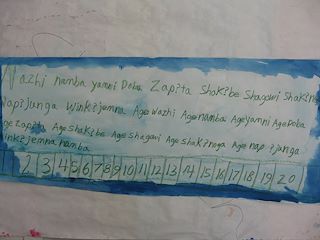 Wazhi nanba yamni Doba Zapita Shakibe Shagawi Shakinga
Napijunga Winkijemna Age Wazhi Age nanba Age yamni Age Doba
ge Zapita Age Shakibe Age shagavi Age shakinga Age nap ijanga
inkijemna nanba
2 3 4 5 6 7 8 9 10 11 12 13 14 15 16 17 18 19 20